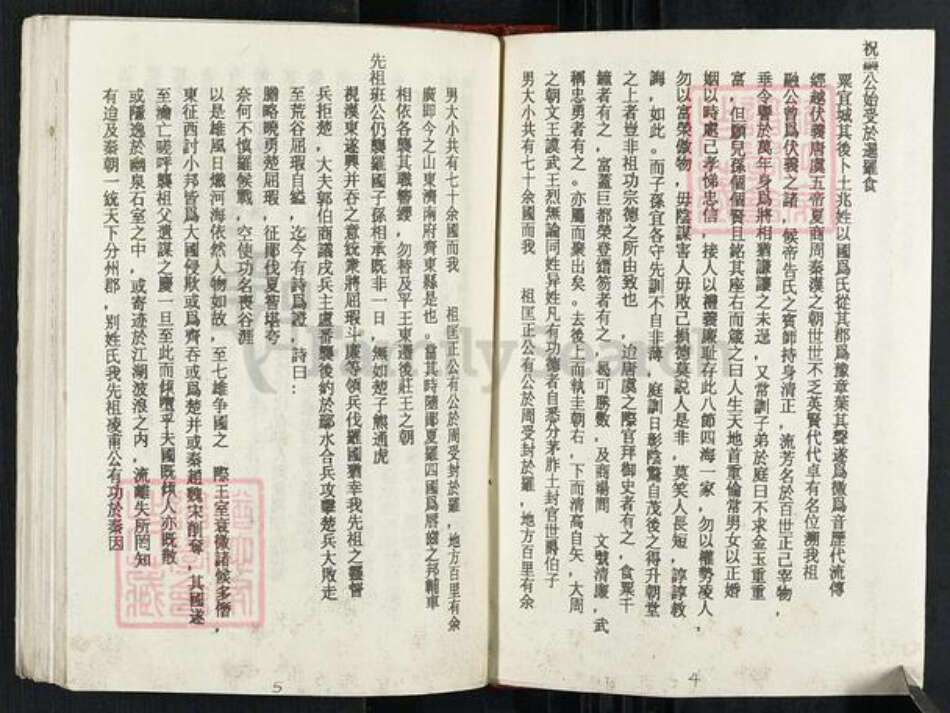 祝融公始受於暹羅食
粟宜城其後卜土兆姓以國爲氏從其郡爲豫章葉其聲遂爲徵爲音歷代流傳
經越伏羲唐虞五帝夏商周秦漢之朝世世不乏英賢代代卓有名位溯我祖
融公曾爲伏羲之諸，候帝告氏之賓師持身清正，流芳名於百世正己宰物，
垂令譽於萬年身爲將相猶謙謙之未逞，又常訓子弟於庭曰不求金玉重重
富，但願兒孫個個賢且銘其座右而箴之曰人生天地首重倫常男女以正婚
姻以時處己孝悌忠信，接人以禮義廉耻存此八節四海一家，勿以權勢凌人，
勿以富榮傲物，毋陰謀害人毋敗己損德莫説人是非，莫笑人長短，諄諄教
誨，如此。而子孫宜各守先訓不自非薄，庭訓日彰陰騭自茂後之得升朝堂
之上者豈非祖功宗德之所由致也，迨唐虞之際官拜御史者有之，食粟千
鐘者有之，富蓋巨都榮登縉笏者有之，曷可勝數，及商場問，文號清廉，武
稱忠勇者有之。亦屬而聚出矣。去後上而執圭朝右，下而清高自矢，大周
之朝文王謨武王烈無論同姓异姓凡有功德者自悉分茅胙土封官世爵伯子
男大小共有七十余國而我　祖匡正公有公於周受封於羅，地方百里有余
男大小共有七十余國而我　祖匡正公有公於周受封於羅，地方百里有余
廣即今之山東濟南府齊東縣是也。當其時隨鄖夏羅四國爲唇齒之邦輔車
相依各襲其職簪纓，勿替及平王東遷後莊王之朝
先祖班公仍襲羅國子孫相承既非一日，無如楚子熊通虎
視漢東遂興并吞之意統衆將屈瑕斗廉等領兵伐羅國猶幸我先祖之靈督
兵拒楚，大夫郭伯商議戌兵主盧番襲後約於鄢水合兵攻擊楚兵大敗走
至荒谷屈瑕自縊，迄今有詩爲證　詩曰：
膽略曉勇楚屈瑕，征鄖伐夏智堪夸
奈何不慎羅候戰，空使功名喪谷涯
以是雄風日熾河海依然人物如故，至七雄爭國之　際王室衰微諸候多僭，
東征西討小邦皆爲大國侵欺或爲齊吞或爲楚并或秦趙魏宋削奪，其國遂
至淪亡嗟呼襲祖父遺謀之慶一旦至此而傾墮乎夫國既傾人亦既散
或隱逸於幽泉石室之中，或寄迹於江湖波浪之内，流離失所罔知
有迫及秦朝一統天下分州郡，别姓氏我先祖凌甫公有功於秦因
4
5
FamilySearch